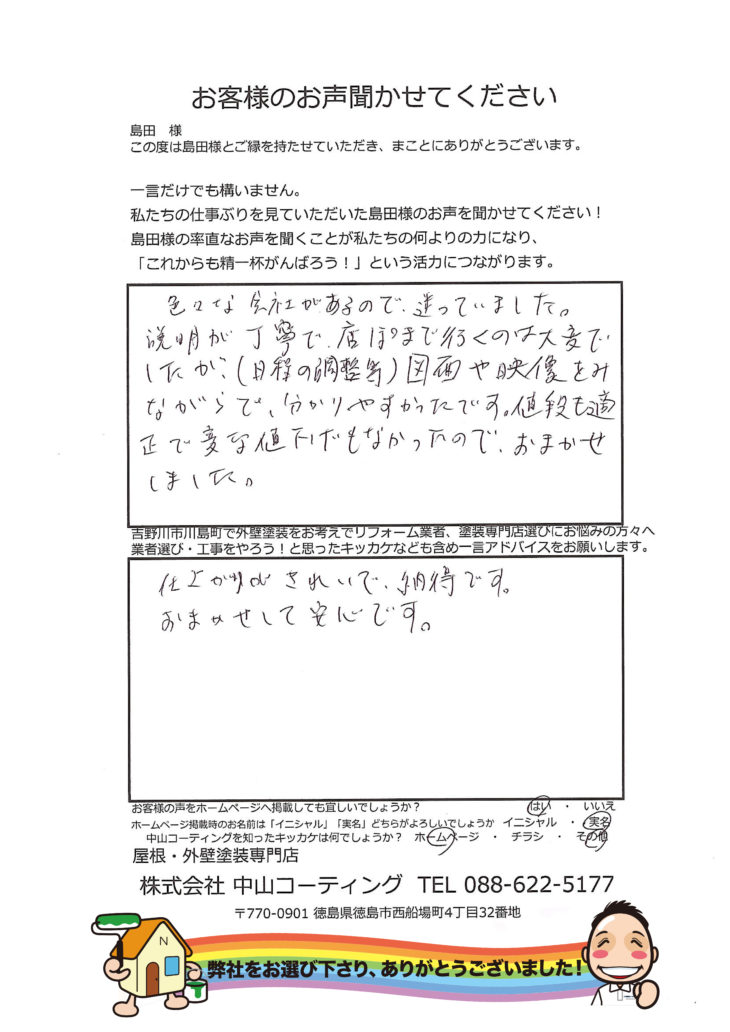 お客様のお声聞かせてください
島田　様
この度は島田様とご縁を持たせていただき、まことにありがとうございます。
一言だけでも構いません。
私たちの仕事ぶりを見ていただいた島田様のお声を聞かせてください！
島田様の率直なお声を聞くことが私たちの何よりの力になり、
「これからも精一杯がんばろう！」という活力につながります。
色々な会社があるので、迷っていました。
説明が丁寧で、店ほ゜まで行くのは大変で
したが、(日程の調整等)図面や映像をみ
ながらで、分かりやすかったです。値段も適
正で変な値下げもなかったので、おまかせ
しました。
吉野川市川島町で外壁塗装をお考えでリフォーム業者、塗装専門店選びにお悩みの方々へ
業者選び・工事をやろう！と思ったキッカケなども含め一言アドバイスをお願いします。
仕上がりがきれいで、納得です。
おまかせして安心です。
お客様の声をホームページへ掲載しても宜しいでしょうか？　はい　・　いいえ
ホームページ掲載時のお名前は「イニシャル」「実名」どちらがよろしいでしょうか　イニシャル　・　実名
中山コーティングを知ったキッカケは何でしょうか？　ホームページ　・　チラシ　・　その他
屋根・外壁塗装専門店
株式会社 中山コーティング　TEL 088-622-5177
〒770-0901 徳島県徳島市西船場町4丁目32番地
N
弊社をお選び下さり、ありがとうございました！